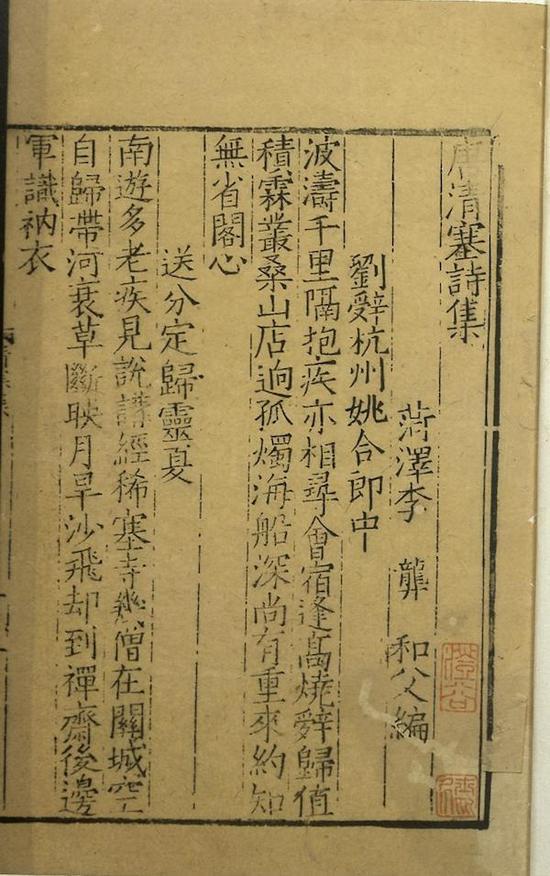 唐清塞詩集
菏澤李 龏 和父編
劉辭杭州姚合郎中
波濤千里隔抱疾亦相尋會宿逢高燒辭歸值
積霖叢桑山店逈孤燭海船深尚有重來約知
無省閣心
送分定歸靈夏
南遊多老疾見說講經稀塞寺幾僧在關城空
自歸帶河衰草斷映月旱沙飛却到禪齋後邊
軍識衲衣